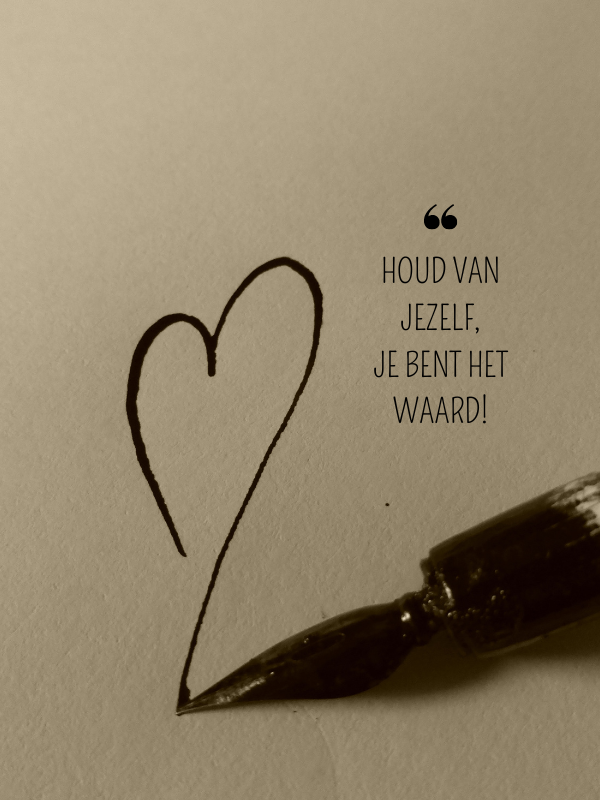 ❝
HOUD VAN
JEZELF,
JE BENT HET
WAARD!